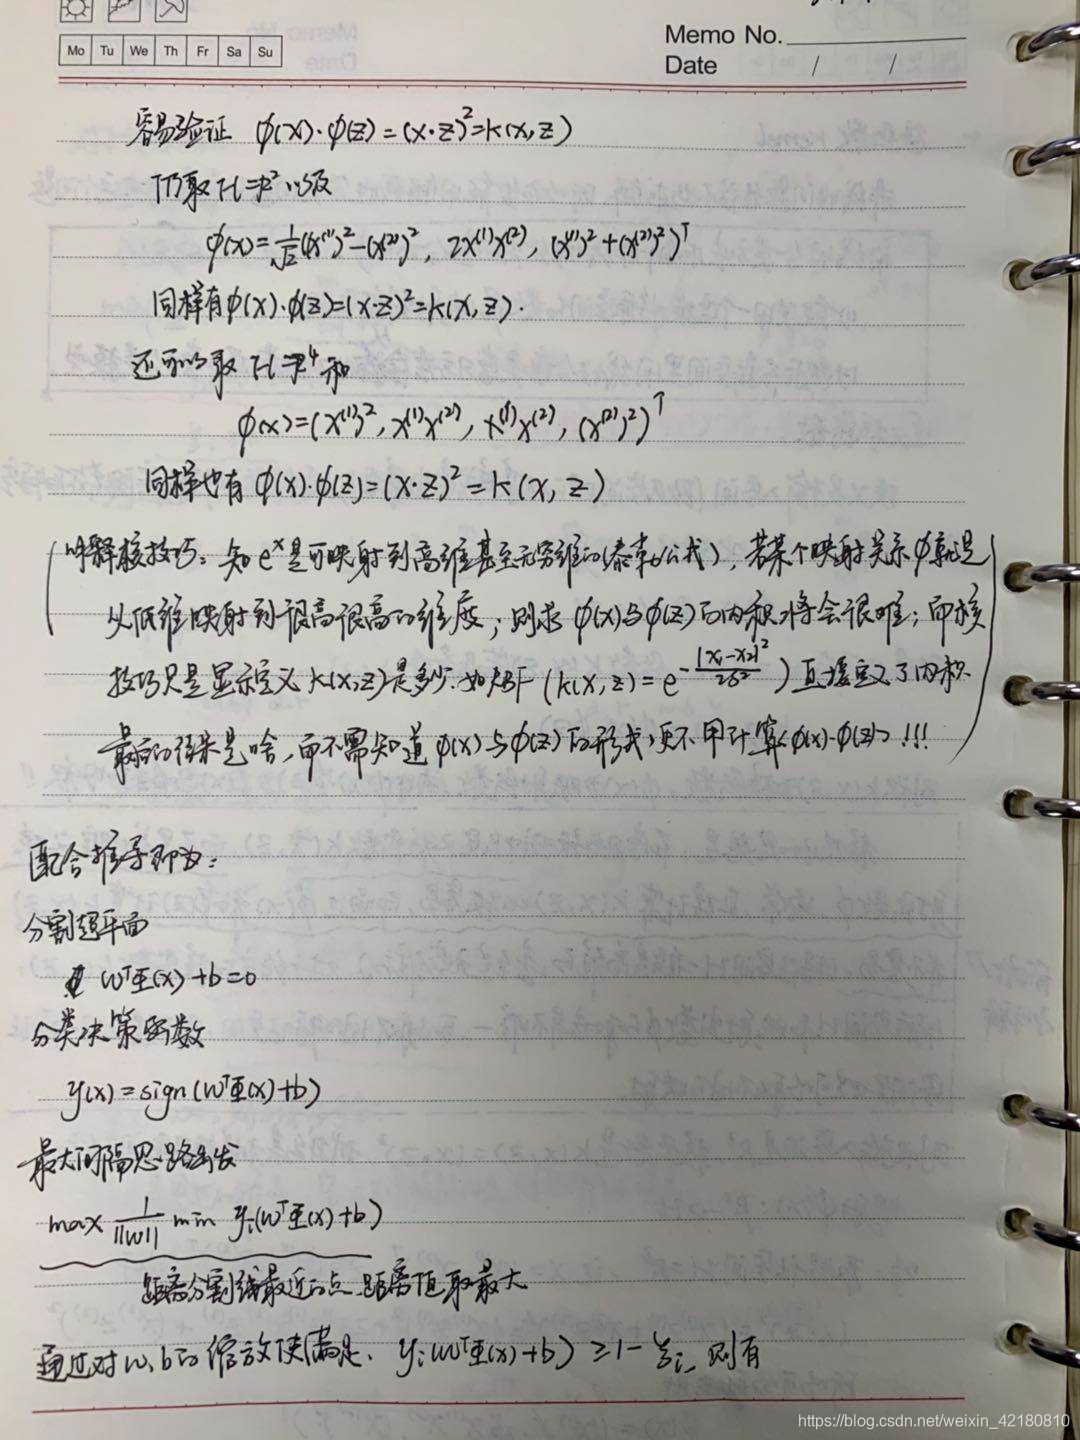 Mo Tu We Th Fr Sa Su
Memo No.
Date / /
容易验证 φ(x)·φ(z)=(x·z)²=k(x,z)
仍取 H=R² 以及
φ(x)=1/√2((x⁽¹⁾)²-(x⁽²⁾)², 2x⁽¹⁾x⁽²⁾, (x⁽¹⁾)²+(x⁽²⁾)²)ᵀ
同样有φ(x)·φ(z)=(x·z)²=k(x,z).
还可以取 H=R⁴ 和
φ(x)=(x⁽¹⁾)², x⁽¹⁾x⁽²⁾, x⁽¹⁾x⁽²⁾, (x⁽²⁾)²)ᵀ
同样也有 φ(x)·φ(z)=(x·z)²=k(x,z)
解释核技巧：知eˣ是可映射到高维甚至无穷维的(泰勒公式)，若某个映射关系φ就是
从低维映射到很高很高的维度；则求φ(x)与φ(z)的内积将会很难；而核
技巧只是显示定义k(x,z)是多少.如RBF (k(x,z)=e^-|x₁-x₂|²/2σ²) 直接定义了内积
最后的结果是啥，而不需知道φ(x)与φ(z)的形式,更不用计算<φ(x)·φ(z)> !!!
配合推导即为：
分割超平面
wᵀΦ(x)+b=0
分类决策函数
y(x)=sign(wᵀΦ(x)+b)
最大间隔思路出发
max 1/||w|| min yᵢ(wᵀΦ(x)+b)
距离分割线最近的点 距离值取最大
通过对w,b的缩放使满足. yᵢ(wᵀΦ(x)+b) ≥1-ξᵢ, 则有
https://blog.csdn.net/weixin_42180810